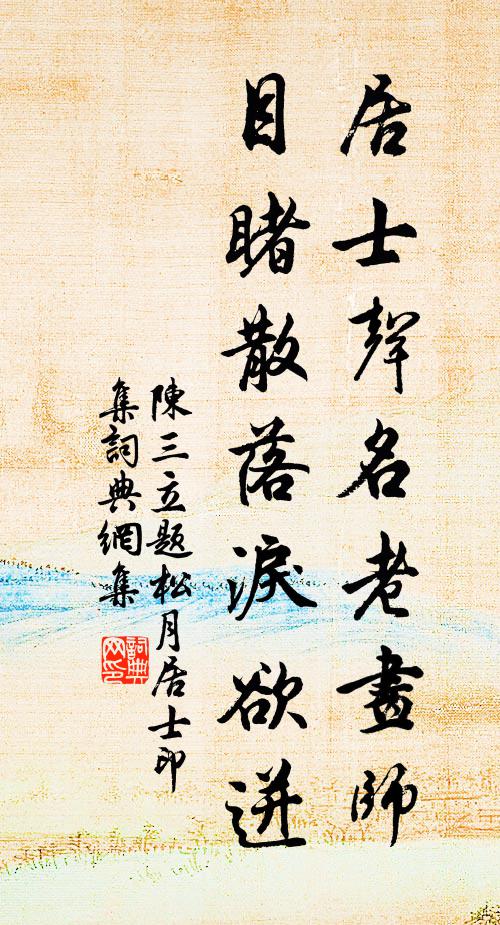 居士聲名老畫師
目睹散落淚欲迸
陳三立題松月居士印
集詞典網集
詞典網印